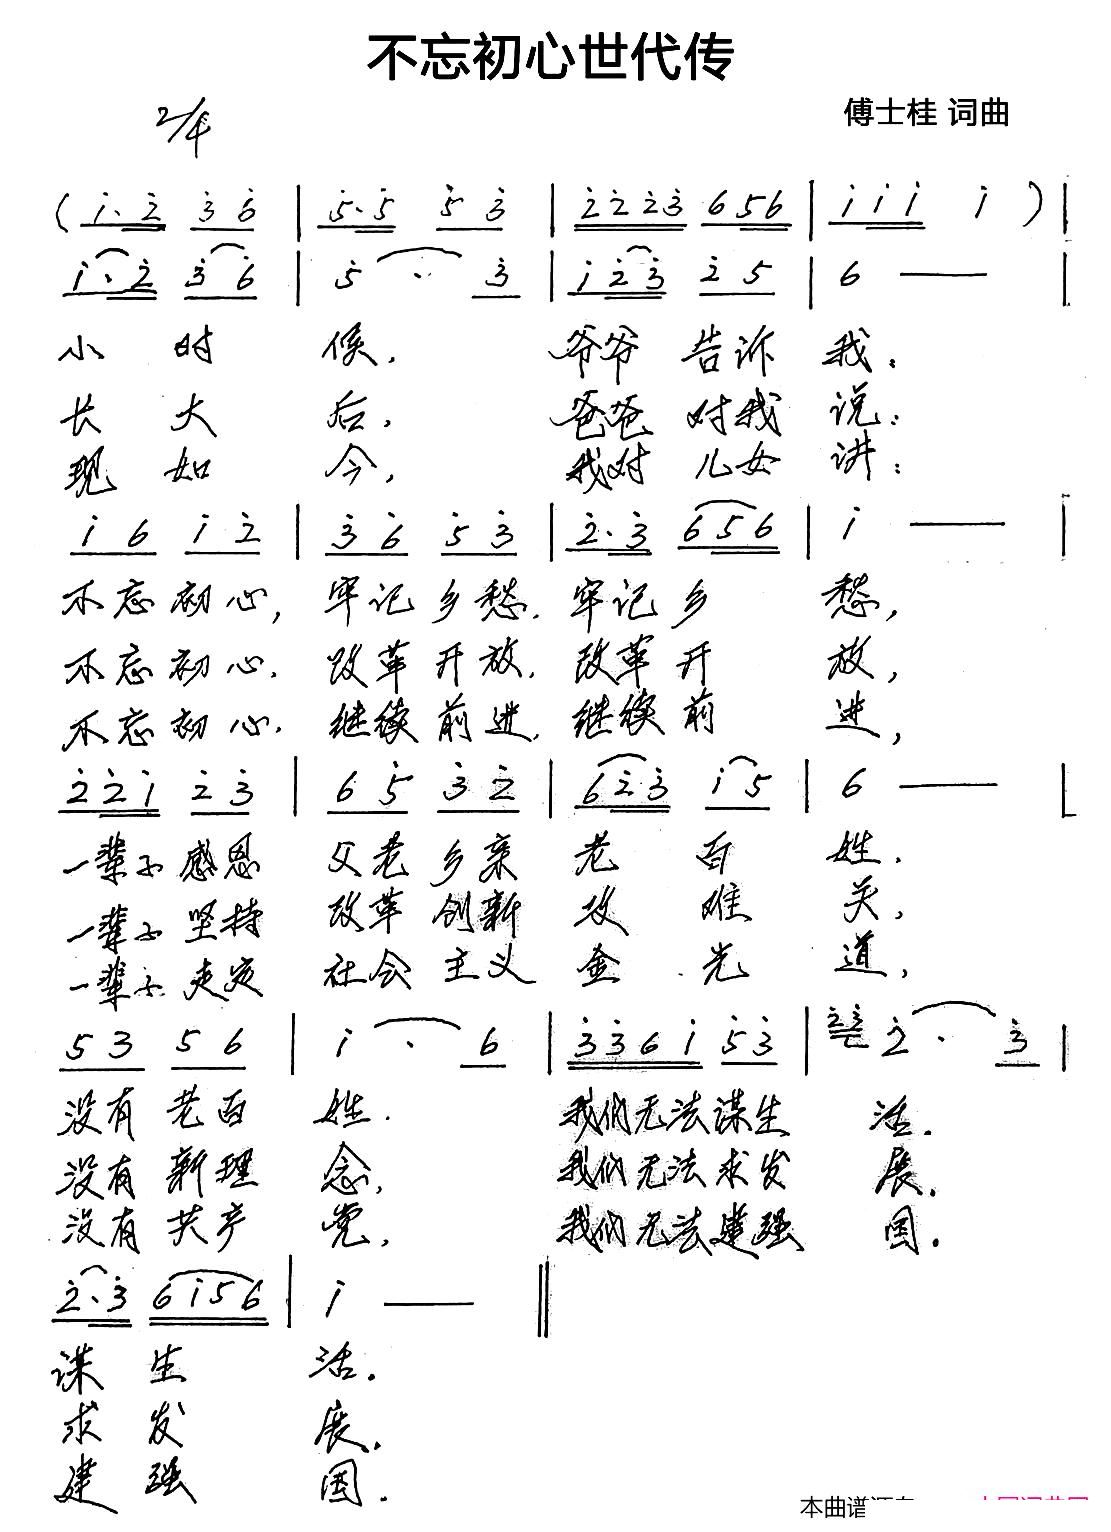 不忘初心世代传
2/4
傅士桂 词曲
( i. 2 3 6 | 5. 5 5 3 | 2 2 2 3 6 5 6 | i i i i ) |
i. 2 3 6 | 5 . 3 | i 2 3 2 5 | 6 — |
小 时 候, 爷爷 告诉 我:
长 大 后, 爸爸 对我 说:
现 如 今, 我对 儿女 讲:
i 6 i 2 | 3 6 5 3 | 2. 3 6 5 6 | i — |
不忘初心, 牢记乡愁, 牢记乡 愁,
不忘初心, 改革开放, 改革开 放,
不忘初心, 继续前进, 继续前 进,
2 2 i 2 3 | 6 5 3 2 | 6 2 3 i 5 | 6 — |
一辈子感恩 父老乡亲 老 百 姓.
一辈子坚持 改革创新 攻 难 关,
一辈子走定 社会主义 金 光 道,
5 3 5 6 | i . 6 | 3 3 6 i 5 3 | 2 3 2 . 3 |
没有老百 姓. 我们无法谋生 活.
没有新理 念, 我们无法求发 展.
没有共产 党, 我们无法建强 国.
2. 3 6 i 5 6 | i — ‖
谋 生 活.
求 发 展.
建 强 国.
本曲谱源自